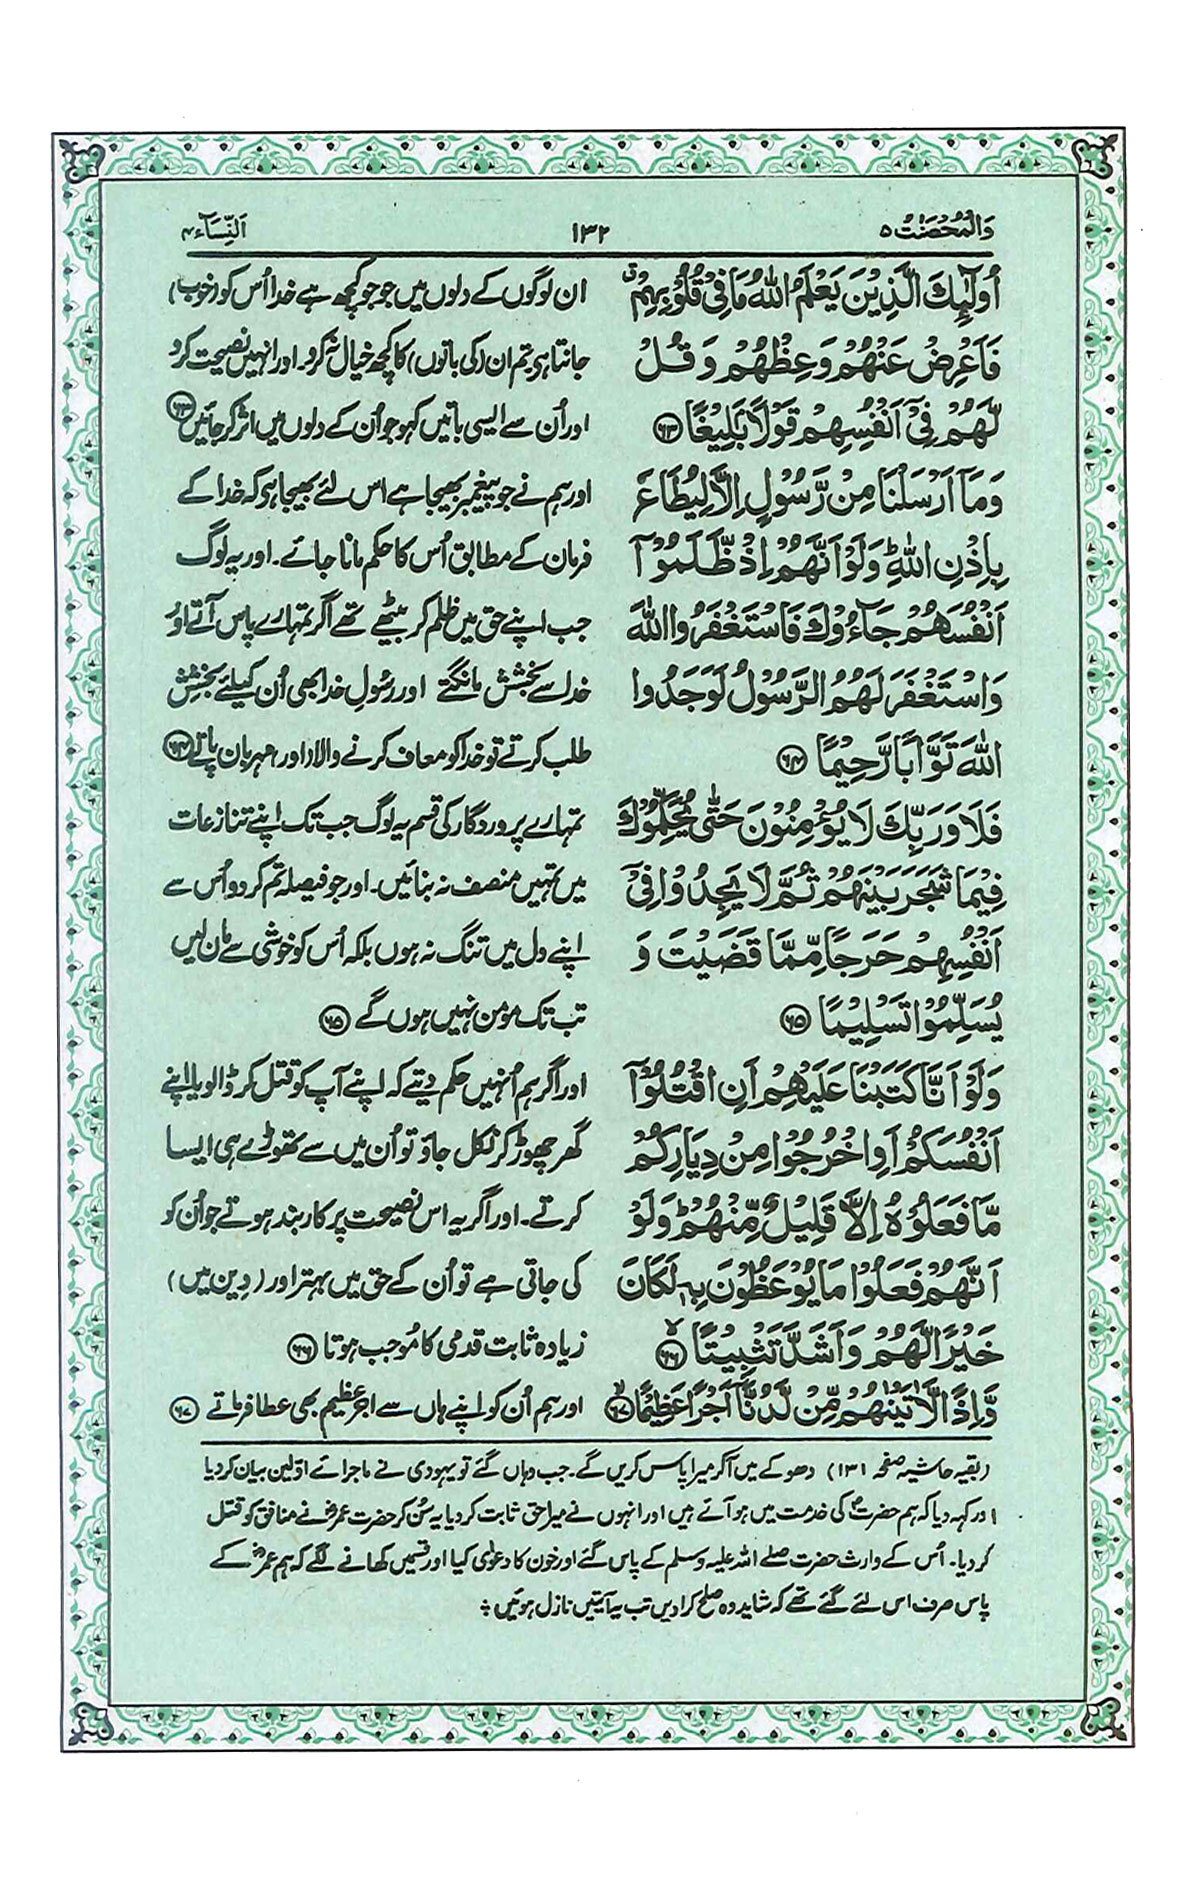 وَالْمُحْصَنٰتُ ۵
۱۳۲
اَلنِّسَآء ۴
اُولٰٓئِكَ الَّذِيْنَ يَعْلَمُ اللّٰهُ مَا فِيْ قُلُوْبِهِمْ ۤ
فَاَعْرِضْ عَنْهُمْ وَعِظْهُمْ وَقُلْ
لَّهُمْ فِيْٓ اَنْفُسِهِمْ قَوْلًاۢ بَلِيْغًا ۶۳
وَمَآ اَرْسَلْنَا مِنْ رَّسُوْلٍ اِلَّا لِيُطَاعَ
بِاِذْنِ اللّٰهِ ۭ وَلَوْ اَنَّهُمْ اِذْ ظَّلَمُوْٓا
اَنْفُسَهُمْ جَآءُوْكَ فَاسْتَغْفَرُوا اللّٰهَ
وَاسْتَغْفَرَ لَهُمُ الرَّسُوْلُ لَوَجَدُوا
اللّٰهَ تَوَّابًا رَّحِيْمًا ۶۴
فَلَا وَرَبِّكَ لَا يُؤْمِنُوْنَ حَتّٰى يُحَكِّمُوْكَ
فِيْمَا شَجَرَ بَيْنَهُمْ ثُمَّ لَا يَجِدُوْا فِيْٓ
اَنْفُسِهِمْ حَرَجًا مِّمَّا قَضَيْتَ وَ
يُسَلِّمُوْا تَسْلِيْمًا ۶۵
وَلَوْ اَنَّا كَتَبْنَا عَلَيْهِمْ اَنِ اقْتُلُوْٓا
اَنْفُسَكُمْ اَوِ اخْرُجُوْا مِنْ دِيَارِكُمْ
مَّا فَعَلُوْهُ اِلَّا قَلِيْلٌ مِّنْهُمْ ۭ وَلَوْ
اَنَّهُمْ فَعَلُوْا مَا يُوْعَظُوْنَ بِهٖ لَكَانَ
خَيْرًا لَّهُمْ وَاَشَدَّ تَثْبِيْتًا ۙ ۶۶
وَّاِذًا لَّاٰتَيْنٰهُمْ مِّنْ لَّدُنَّآ اَجْرًا عَظِيْمًا ۙ ۶۷
ان لوگوں کے دلوں میں جو جو کچھ ہے خدا اُس کو (خوب)
جانتا ہی تم ان (کی باتوں) کا کچھ خیال نہ کرو۔ اور انہیں نصیحت کرو
اور اُن سے ایسی باتیں کہو جو اُن کے دلوں میں اثر کر جائیں ۶۳
اور ہم نے جو پیغمبر بھیجا ہے اس لئے بھیجا ہی کہ خدا کے
فرمان کے مطابق اُس کا حکم مانا جائے۔ اور یہ لوگ
جب اپنے حق میں ظلم کر بیٹھے تھے اگر تمہارے پاس آتے اور
خدا سے بخشش مانگتے اور رسولِ خدا بھی اُن کیلئے بخشش
طلب کرتے تو خدا کو معاف کرنے والا (اور) مہربان پاتے ۶۴
تمہارے پروردگار کی قسم یہ لوگ جب تک اپنے تنازعات
میں تمہیں منصف نہ بنائیں۔ اور جو فیصلہ تم کر دو اُس سے
اپنے دل میں تنگ نہ ہوں بلکہ اُس کو خوشی سے مان لیں
تب تک مومن نہیں ہوں گے ۶۵
اور اگر ہم اُنہیں حکم دیتے کہ اپنے آپ کو قتل کر ڈالو یا اپنے
گھر چھوڑ کر نکل جاؤ تو اُن میں سے تھوڑے ہی ایسا
کرتے۔ اور اگر یہ اس نصیحت پر کاربند ہوتے جو اُن کو
کی جاتی ہے تو اُن کے حق میں بہتر اور (دِین میں)
زیادہ ثابت قدمی کا مُوجب ہوتا ۶۶
اور ہم اُن کو اپنے ہاں سے اجرِ عظیم بھی عطا فرماتے ۶۷
(بقیہ حاشیہ صفحہ ۱۳۱) دھوکے میں آکر میرا پاس کریں گے۔ جب وہاں گئے تو یہودی نے ماجرائے اوّلین بیان کر دیا
اور کہہ دیا کہ ہم حضرتؐ کی خدمت میں ہو آئے ہیں اور انہوں نے میرا حق ثابت کر دیا۔ یہ سُن کر حضرت عمرؓ نے منافق کو قتل
کر دیا۔ اُس کے وارث حضرت صلے اللہ علیہ وسلم کے پاس گئے اور خون کا دعوٰی کیا اور قسمیں کھانے لگے کہ ہم عمرؓ کے
پاس صرف اس لئے گئے تھے کہ شاید وہ صلح کرا دیں تب یہ آیتیں نازل ہوئیں ؞